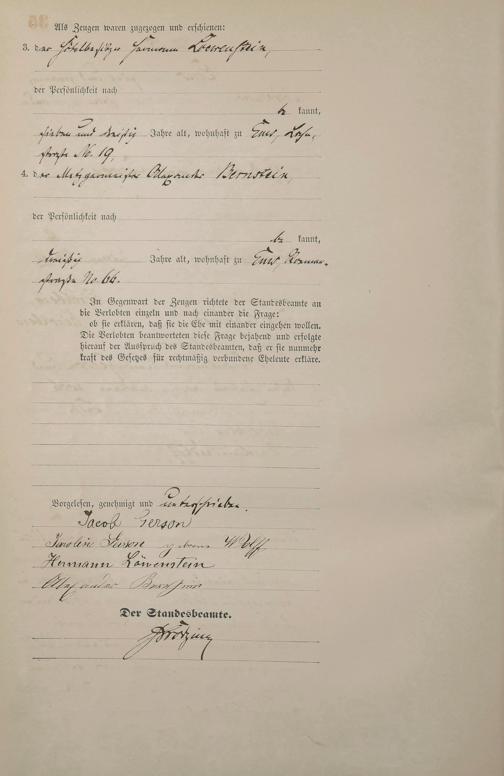 Als Zeugen waren zugezogen und erschienen:
3. der Hotelbesitzer Hermann Loewenstein,
der Persönlichkeit nach
be kannt,
sieben und dreißig Jahre alt, wohnhaft zu Ems, Lahn-
straße No. 19,
4. der Metzgermeister Alexander Bernstein,
der Persönlichkeit nach
be kannt,
dreißig Jahre alt, wohnhaft zu Ems,
straße No 66.
In Gegenwart der Zeugen richtete der Standesbeamte an
die Verlobten einzeln und nach einander die Frage:
ob sie erklären, daß sie die Ehe mit einander eingehen wollen.
Die Verlobten beantworteten diese Frage bejahend und erfolgte
hierauf der Ausspruch des Standesbeamten, daß er sie nunmehr
kraft des Gesetzes für rechtmäßig verbundene Eheleute erkläre.
Vorgelesen, genehmigt und unterschrieben.
Jacob Gerson
Gerson geborene Wolff
Hermann Löwenstein
Alexander Bernstein
Der Standesbeamte.